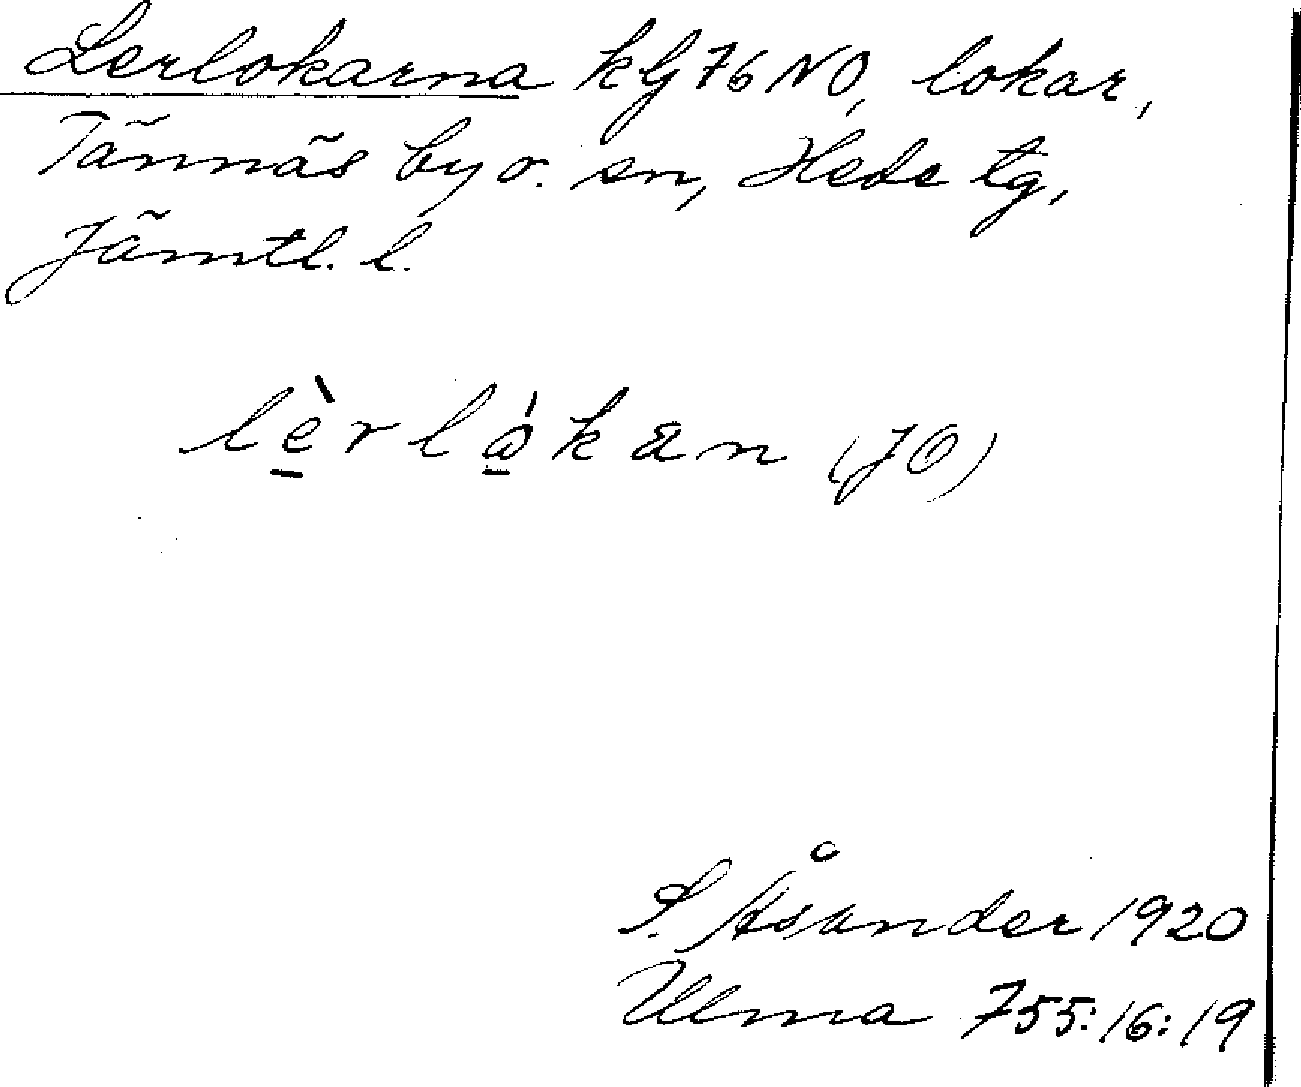 Lerlokarna kbl 76 NO, lokar,
Tännäs by o. sn, Heds tg,
Jämtl. l.
lèrlókan (JO)
S. Åsander 1920
Ulma 755:16:19